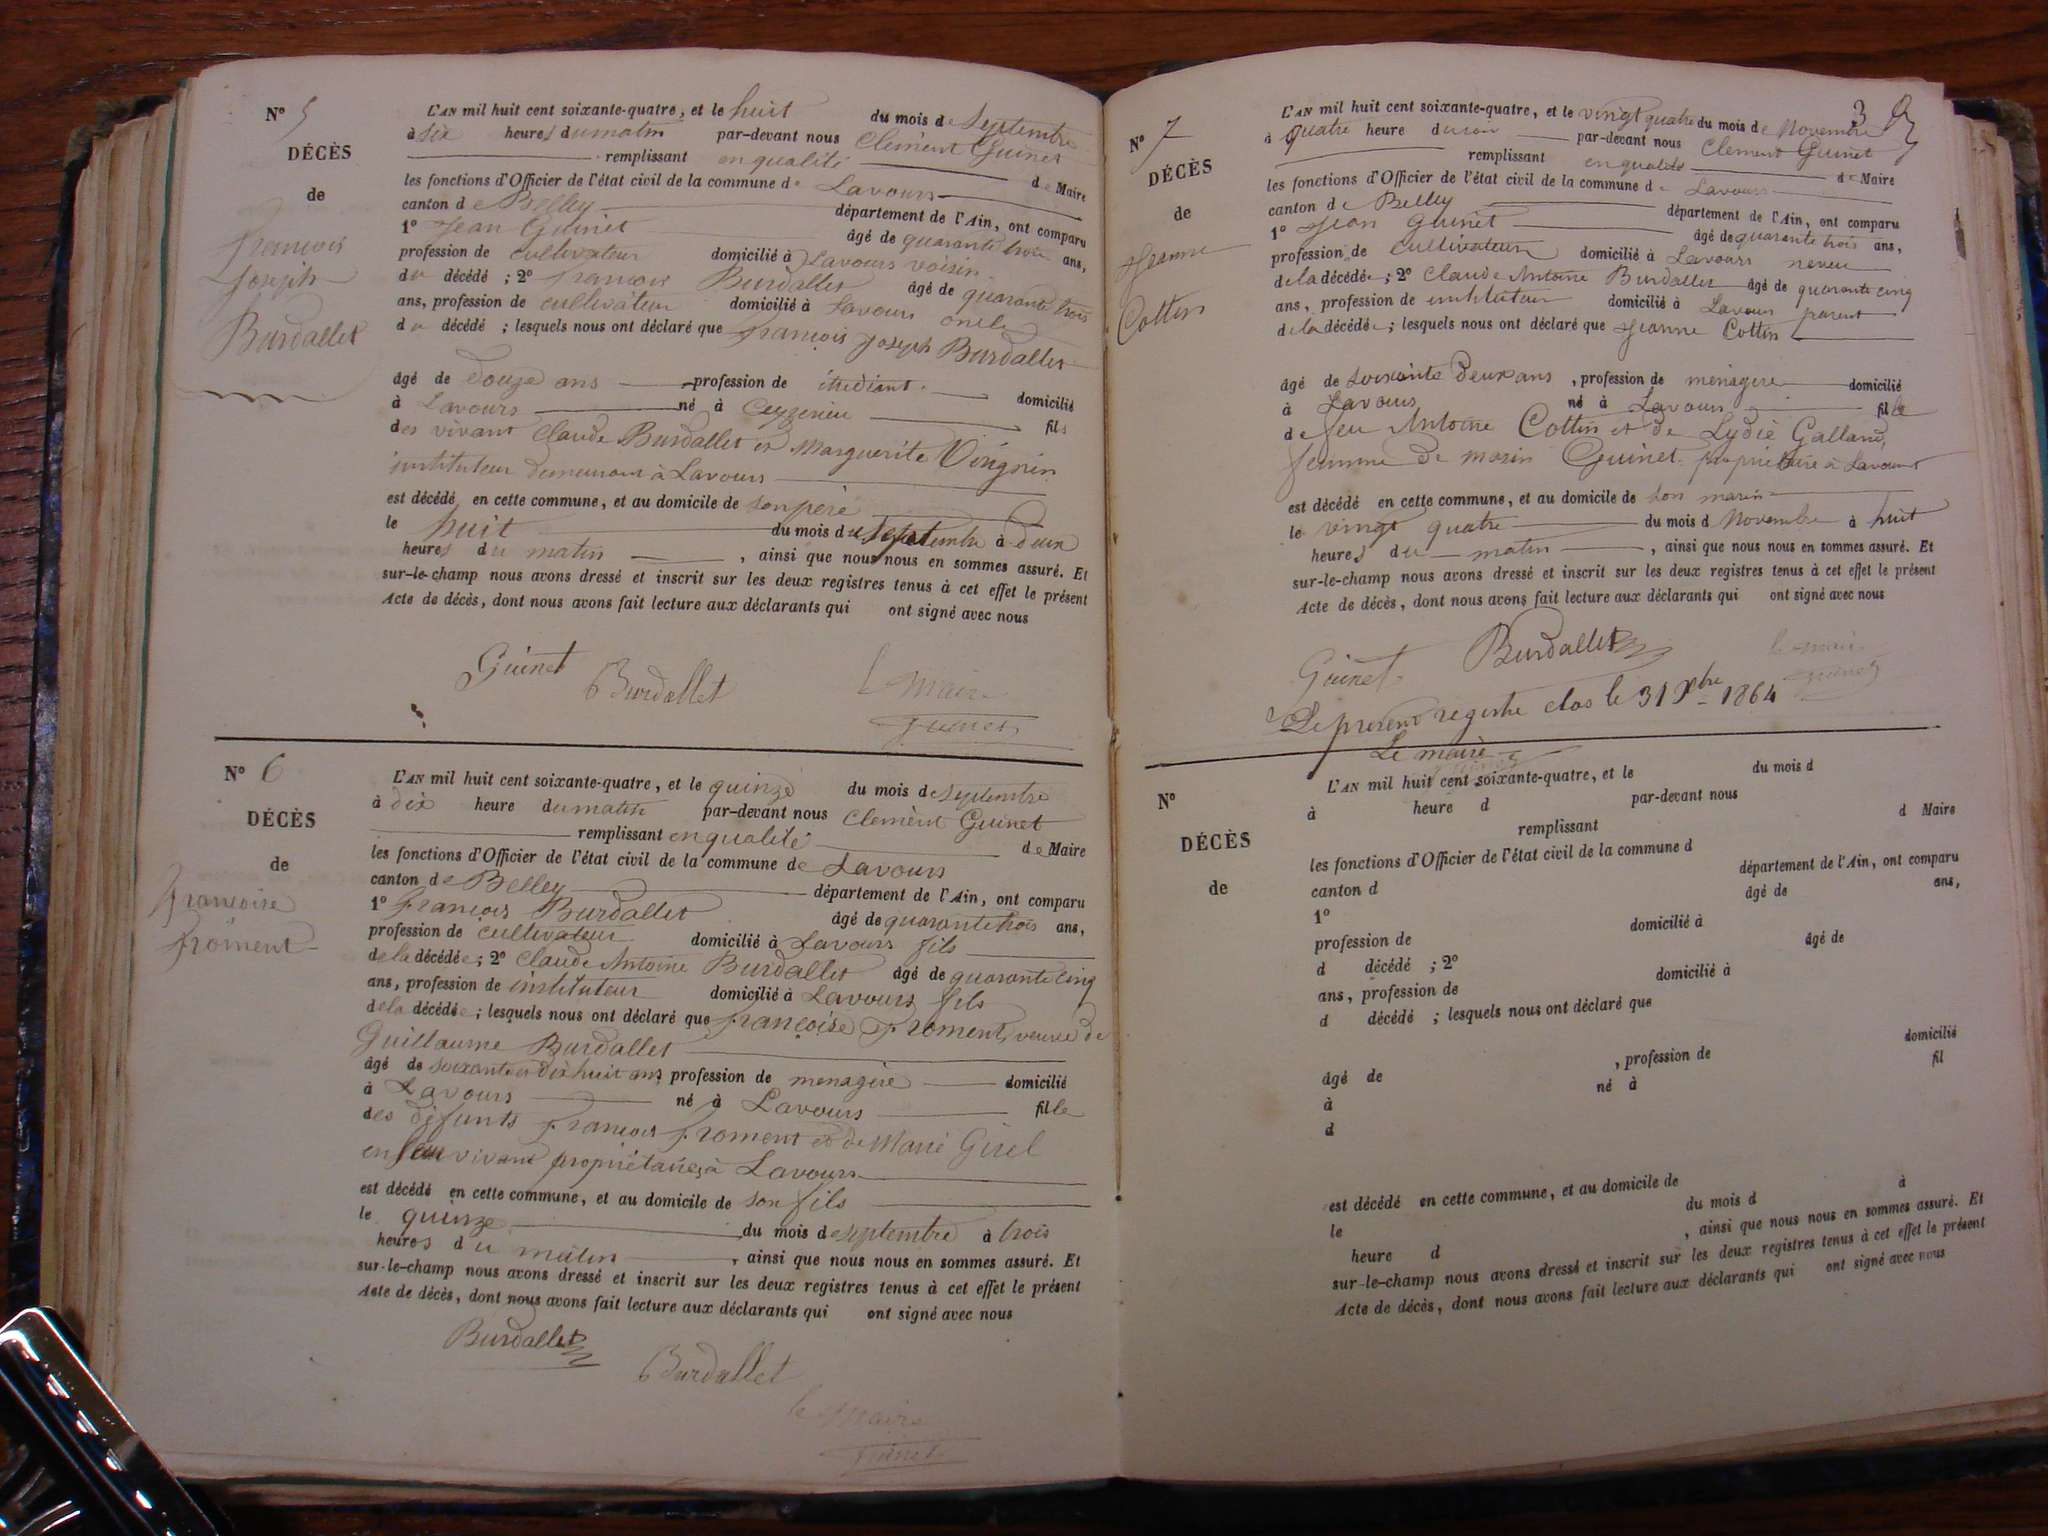 N° 5
DÉCÈS
de
françois
Joseph
Burdallet
L'AN mil huit cent soixante-quatre, et le huit du mois de Septembre
à six heures du matin par-devant nous Clément Guinet
remplissant en qualité de Maire
les fonctions d'Officier de l'état civil de la commune de Lavours
canton de Belley département de l'Ain, ont comparu
1° Jean Guinet âgé de quarante trois ans,
profession de cultivateur domicilié à Lavours voisin
du décédé ; 2° françois Burdallet âgé de quarante trois
ans, profession de cultivateur domicilié à Lavours oncle
du décédé ; lesquels nous ont déclaré que françois Joseph Burdallet
âgé de douze ans profession de étudiant domicilié
à Lavours né à Ceyzerieu fils
des vivant Claude Burdallet et Marguerite
instituteur demeurant à Lavours
est décédé en cette commune, et au domicile de son père
le huit du mois de septembre à deux
heures du matin , ainsi que nous nous en sommes assuré. Et
sur-le-champ nous avons dressé et inscrit sur les deux registres tenus à cet effet le présent
Acte de décès, dont nous avons fait lecture aux déclarants qui ont signé avec nous
Guinet Burdallet le Maire
Guinet
N° 6
DÉCÈS
de
françoise
froment
L'AN mil huit cent soixante-quatre, et le quinze du mois de septembre
à dix heure du matin par-devant nous Clemènt Guinet
remplissant en qualité de Maire
les fonctions d'Officier de l'état civil de la commune de Lavours
canton de Belley département de l'Ain, ont comparu
1° françois Burdallet âgé de quarante trois ans,
profession de cultivateur domicilié à Lavours fils
de la décédée ; 2° Claude Antoine Burdallet âgé de quarante cinq
ans, profession de instituteur domicilié à Lavours fils
de la décédée ; lesquels nous ont déclaré que françoise froment, veuve de
Guillaume Burdallet
âgé de soixante et dix huit ans profession de menagère domicilié
à Lavours né à Lavours fille
des défunts françois froment et de Marie Girel
en vivant propriétaires à Lavours
est décédé en cette commune, et au domicile de son fils
le quinze du mois de septembre à trois
heures du matin , ainsi que nous nous en sommes assuré. Et
sur-le-champ nous avons dressé et inscrit sur les deux registres tenus à cet effet le présent
Acte de décès, dont nous avons fait lecture aux déclarants qui ont signé avec nous
Burdallet
Burdallet
le Maire
Guinet
3
N° 7
DÉCÈS
de
Jeanne
Cottin
L'AN mil huit cent soixante-quatre, et le vingt quatre du mois de Novembre
à quatre heure du soir par-devant nous Clement Guinet
remplissant en qualité de Maire
les fonctions d'Officier de l'état civil de la commune de Lavours
canton de Belley département de l'Ain, ont comparu
1° Jean Guinet âgé de quarante trois ans,
profession de cultivateur domicilié à Lavours neveu
de la décédée ; 2° Claude Antoine Burdallet âgé de quarante cinq
ans, profession de instituteur domicilié à Lavours parent
de la décédée ; lesquels nous ont déclaré que Jeanne Cottin
âgé de soixante deux ans , profession de menagere domicilié
à Lavours né à Lavours fille
de feu Antoine Cottin et de Lydie Galland,
femme de marin Guinet propriétaire à Lavours
est décédé en cette commune, et au domicile de son marin
le vingt quatre du mois d Novembre à huit
heures du matin , ainsi que nous nous en sommes assuré. Et
sur-le-champ nous avons dressé et inscrit sur les deux registres tenus à cet effet le présent
Acte de décès, dont nous avons fait lecture aux déclarants qui ont signé avec nous
Guinet Burdallet le maire
Guinet
Le présent registre clos le 31 Xbre 1864
Le maire
N°
DÉCÈS
de
L'AN mil huit cent soixante-quatre, et le du mois d
à heure d par-devant nous
remplissant d Maire
les fonctions d'Officier de l'état civil de la commune d
canton d département de l'Ain, ont comparu
1° âgé de ans,
profession de domicilié à
d décédé ; 2° âgé de
ans, profession de domicilié à
d décédé ; lesquels nous ont déclaré que
âgé de , profession de domicilié
à né à fil
d
est décédé en cette commune, et au domicile de
le du mois d à
heure d , ainsi que nous nous en sommes assuré. Et
sur-le-champ nous avons dressé et inscrit sur les deux registres tenus à cet effet le présent
Acte de décès, dont nous avons fait lecture aux déclarants qui ont signé avec nous